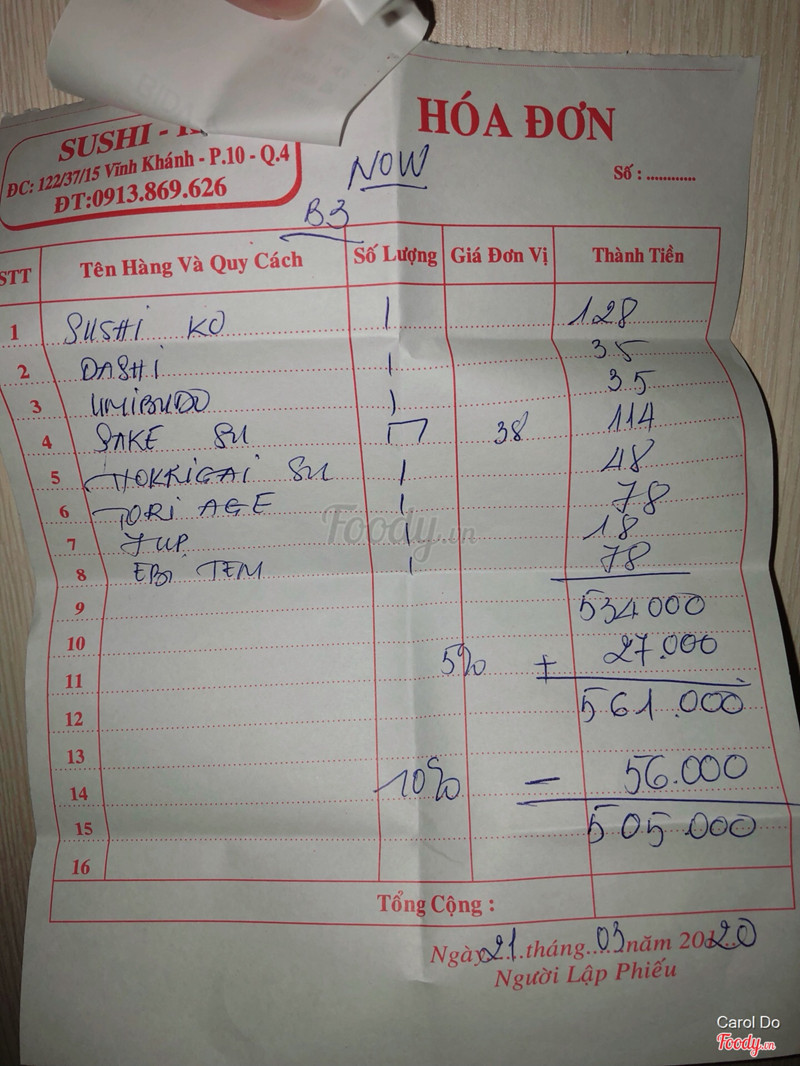 SUSHI - K
ĐC: 122/37/15 Vĩnh Khánh - P.10 - Q.4
ĐT:0913.869.626
HÓA ĐƠN
Số : ............
NOW
B3
STT Tên Hàng Và Quy Cách Số Lượng Giá Đơn Vị Thành Tiền
1 SUSHI KO 1 128
2 DASHI 1 35
3 UMIBUDO 1 35
4 SAKE SU 38 114
5 HOKKIGAI SU 1 48
6 TORI AGE 1 78
7 1 18
8 EBI TEM 1 78
9 534000
10 27.000
11 5% +
12 561.000
13
14 10% - 56.000
15 505.000
16
Tổng Cộng :
Ngày 21 tháng 03 năm 2020
Người Lập Phiếu
Foody.vn
Carol Do
Foody.vn